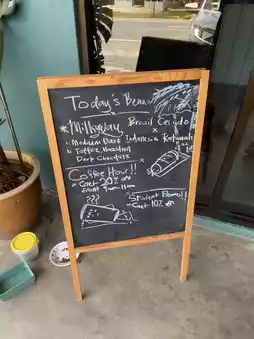 Today's Bean
*Milkyway Brazil Cerrado
x
• Medium Dark Indonesia
• Toffee, Hazelnut
Dark Chocolate
Coffee Hour!!
- Get 20% off
from 9am-11am
???
Student Promo!!
- Get 10%